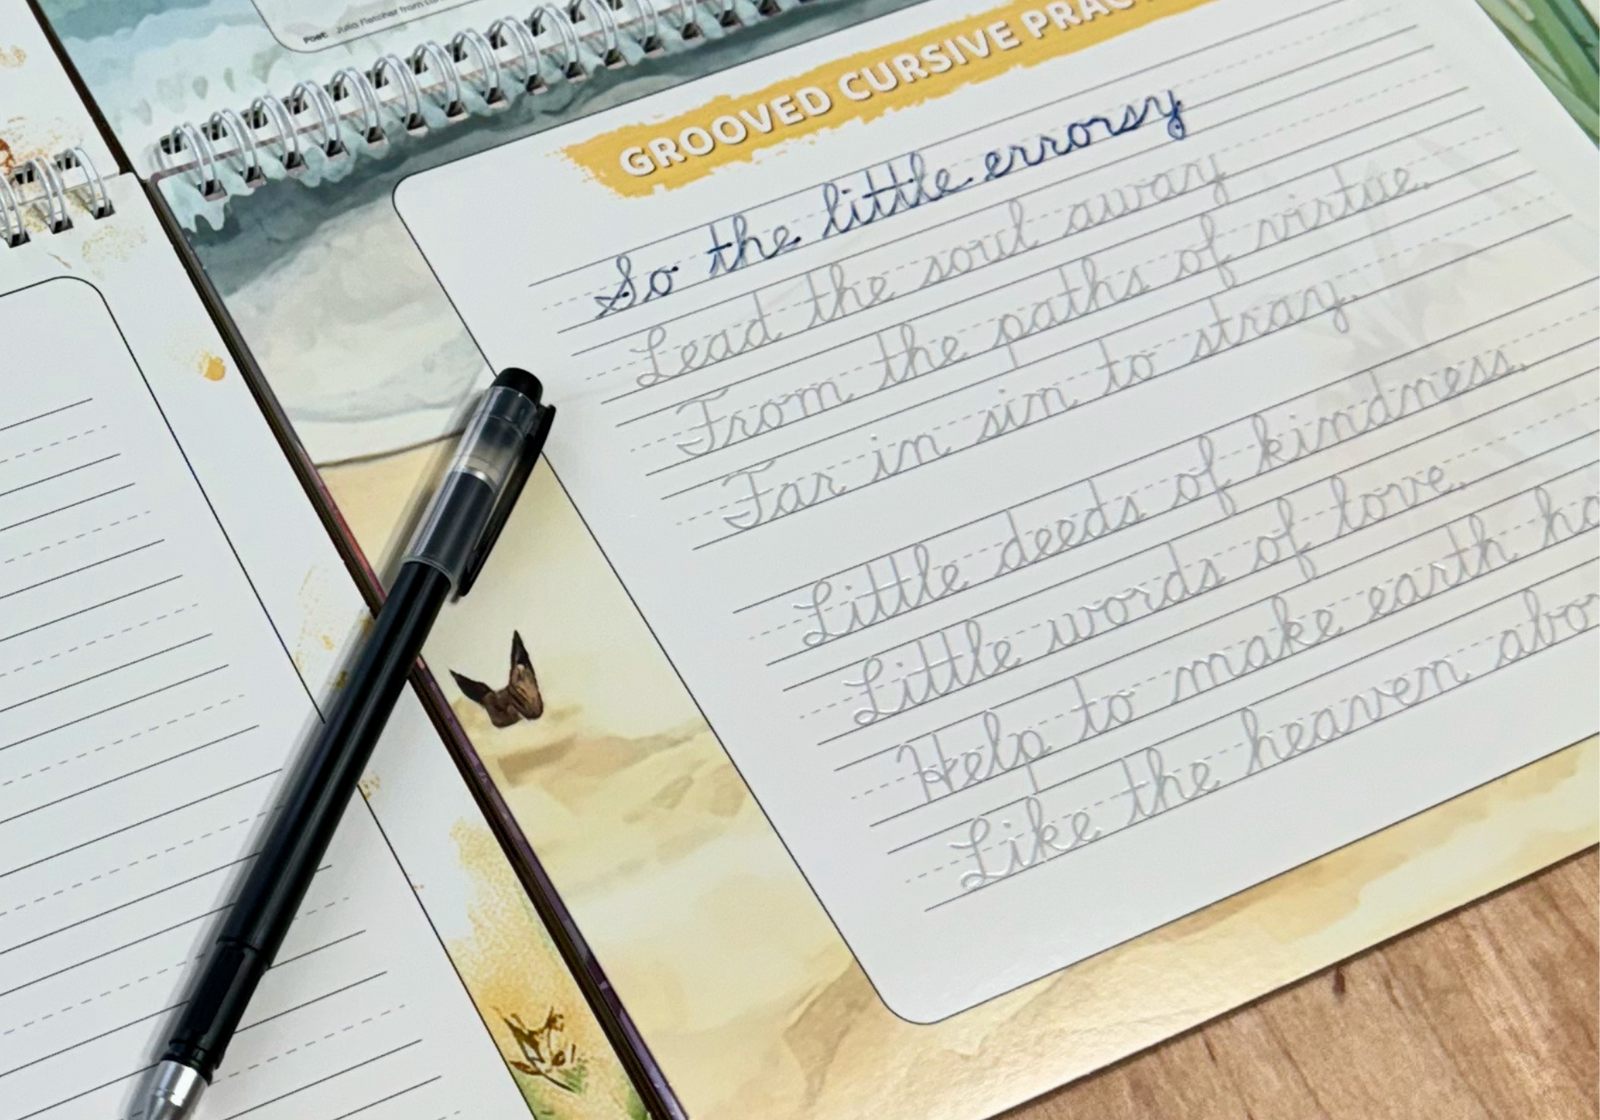 Poet: Julia Fletcher from
GROOVED CURSIVE PRAC
So the little errorsy
Lead the soul away
From the paths of virtue.
Far in sin to stray.
Little deeds of kindness.
Little words of love.
Help to make earth ha
Like the heaven abo